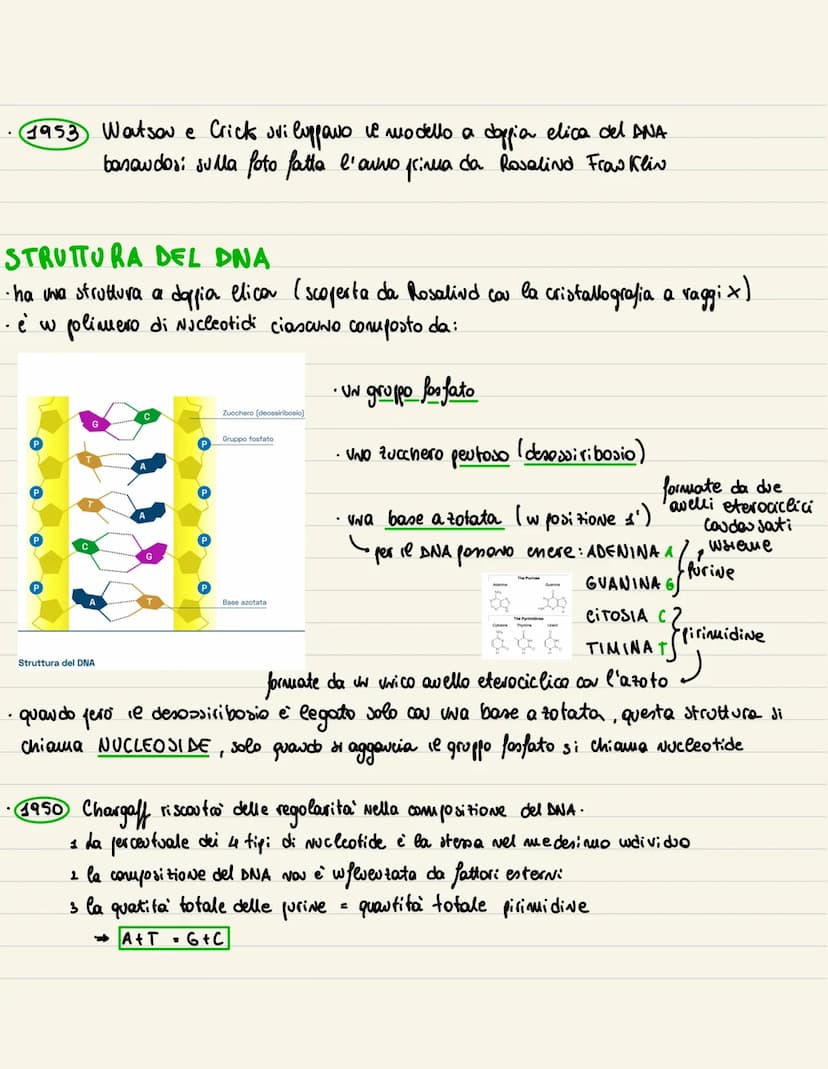 · 1953 Watson e Crick sviluppano il modello a doppia elica del DNA
basandosi sulla foto fatta l'anno prima da Rosalind Franklin
STRUTTURA DEL DNA
· ha una struttura a doppia elica (scoperta da Rosalind con la cristallografia a raggi x)
· è un polimero di nucleotidi ciascuno composto da:
· un gruppo fosfato
· uno zucchero pentoso (desossiribosio)
· una base azotata (in posizione 1')
formate da due
anelli eterociclici
condensati
insieme
↳ per il DNA possono essere: ADENINA A
GUANINA G
purine
CITOSIA C
TIMINA T
pirimidine
G C
Zucchero (deossiribosio)
Gruppo fosfato
P P
T A
P P
T A
P P
C G
P P
A T
Base azotata
Struttura del DNA
The Purines
Adenine Guanine
The Pyrimidines
Cytosine Thymine Uracil
formate da un unico anello eterociclico con l'azoto
· quando però il desossiribosio è legato solo con una base azotata, questa struttura si
chiama NUCLEOSIDE, solo quando si aggancia il gruppo fosfato si chiama nucleotide
· 1950 Chargaff riscontrò delle regolarità nella composizione del DNA.
1 La percentuale dei 4 tipi di nucleotide è la stessa nel medesimo individuo
2 la composizione del DNA non è influentata da fattori esterni
3 la quatità totale delle purine = quantità totale pirimidine
→ A+T = G+C